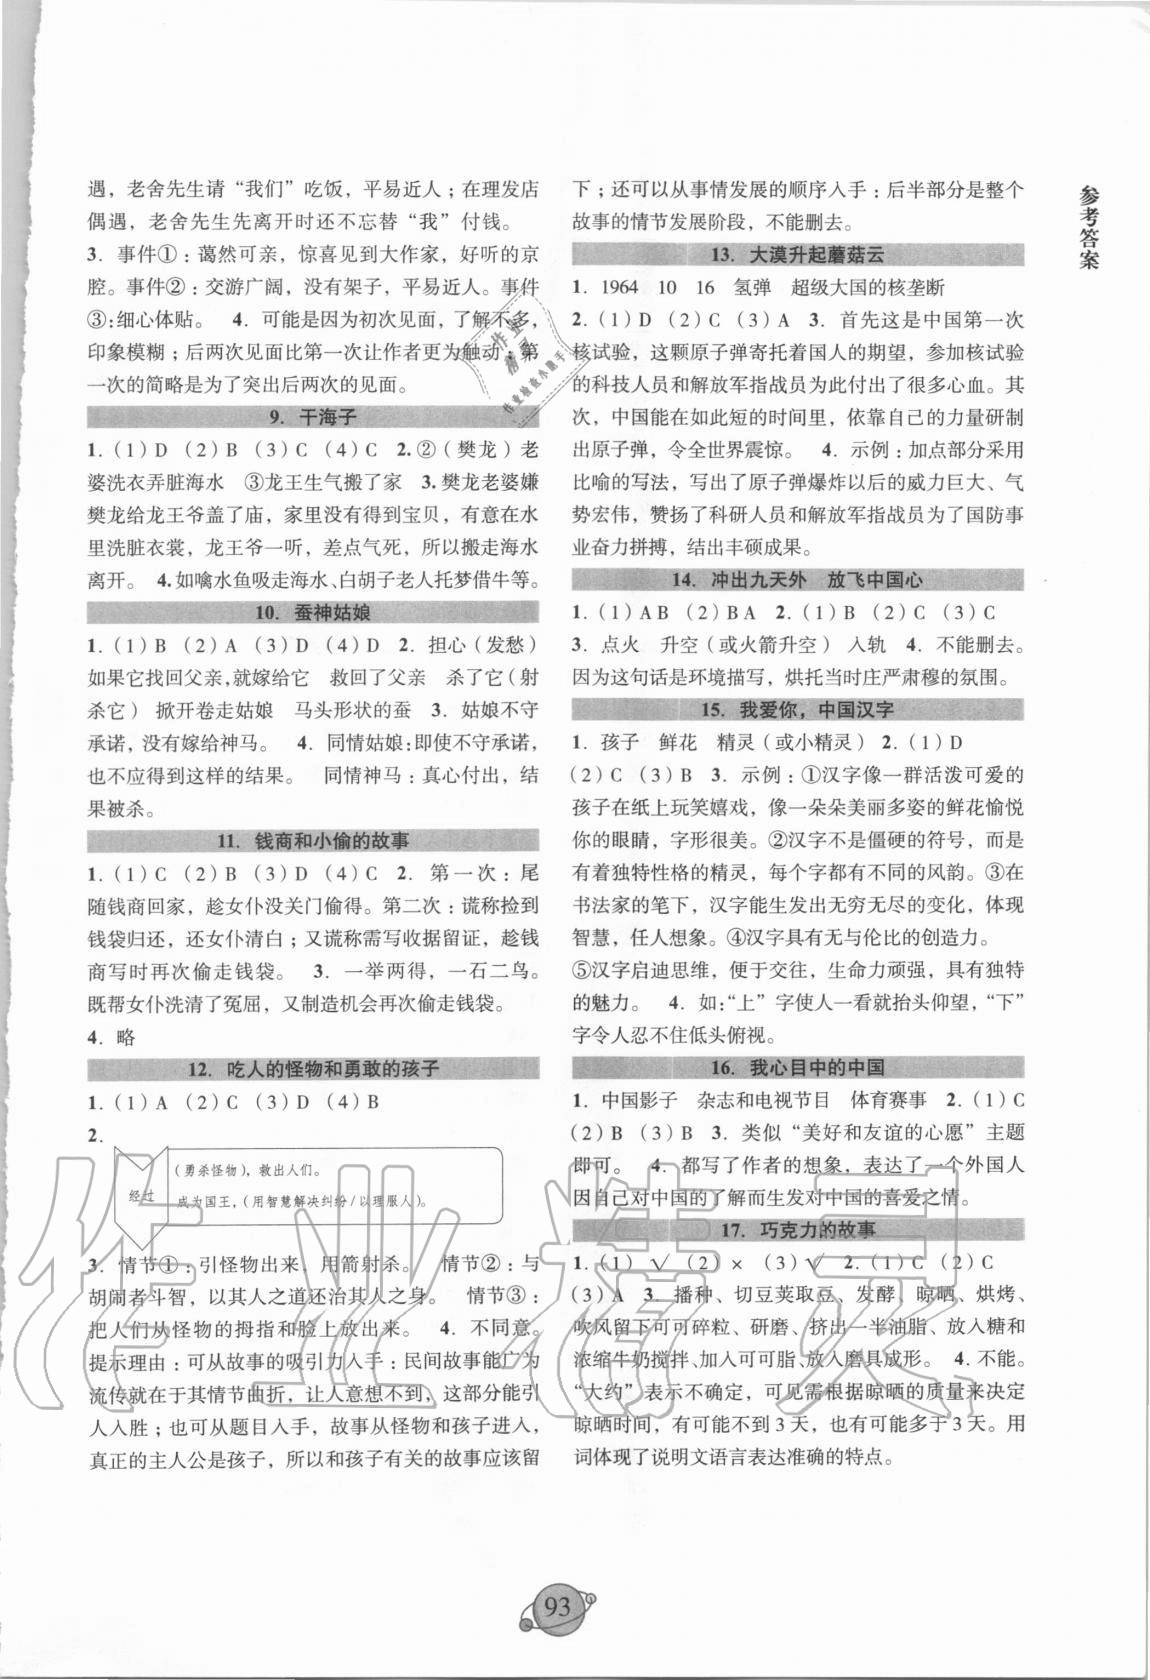 遇，老舍先生请“我们”吃饭，平易近人；在理发店
偶遇，老舍先生先离开时还不忘替“我”付钱。
3. 事件①：蔼然可亲，惊喜见到大作家，好听的京
腔。事件②：交游广阔，没有架子，平易近人。事件
③：细心体贴。 4. 可能是因为初次见面，了解不多，
印象模糊；后两次见面比第一次让作者更为触动；第
一次的简略是为了突出后两次的见面。
9. 干海子
1. (1) D (2) B (3) C (4) C 2. ②（樊龙）老
婆洗衣弄脏海水 ③龙王生气搬了家 3. 樊龙老婆嫌
樊龙给龙王爷盖了庙，家里没有得到宝贝，有意在水
里洗脏衣裳，龙王爷一听，差点气死，所以搬走海水
离开。 4. 如噙水鱼吸走海水、白胡子老人托梦借牛等。
10. 蚕神姑娘
1. (1) B (2) A (3) D (4) D 2. 担心（发愁）
如果找回父亲，就嫁给它 救回了父亲 杀了它（射
杀它） 掀开卷走姑娘 马头形状的蚕 3. 姑娘不守
承诺，没有嫁给神马。 4. 同情姑娘：即使不守承诺，
也不应得到这样的结果。 同情神马：真心付出，结
果被杀。
11. 钱商和小偷的故事
1. (1) C (2) B (3) D (4) C 2. 第一次：尾
随钱商回家，趁女仆没关门偷得。第二次：谎称捡到
钱袋归还，还女仆清白；又谎称需写收据留证，趁钱
商写时再次偷走钱袋。 3. 一举两得，一石二鸟。
既帮女仆洗清了冤屈，又制造机会再次偷走钱袋。
4. 略
12. 吃人的怪物和勇敢的孩子
1. (1) A (2) C (3) D (4) B
2.
经过
（勇杀怪物），救出人们。
成为国王，（用智慧解决纠纷/以理服人）。
3. 情节①：引怪物出来，用箭射杀。 情节②：与
胡闹者斗智，以其人之道还治其人之身。 情节③：
把人们从怪物的拇指和脸上放出来。 4. 不同意。
提示理由：可从故事的吸引力入手：民间故事能广为
流传就在于其情节曲折，让人意想不到，这部分能引
人入胜；也可从题目入手，故事从怪物和孩子进入，
真正的主人公是孩子，所以和孩子有关的故事应该留
下；还可以从事情发展的顺序入手：后半部分是整个
故事的情节发展阶段，不能删去。
13. 大漠升起蘑菇云
1. 1964 10 16 氢弹 超级大国的核垄断
2. (1) D (2) C (3) A 3. 首先这是中国第一次
核试验，这颗原子弹寄托着国人的期望，参加核试验
的科技人员和解放军指战员为此付出了很多心血。其
次，中国能在如此短的时间里，依靠自己的力量研制
出原子弹，令全世界震惊。 4. 示例：加点部分采用
比喻的写法，写出了原子弹爆炸以后的威力巨大、气
势宏伟，赞扬了科研人员和解放军指战员为了国防事
业奋力拼搏，结出丰硕成果。
14. 冲出九天外 放飞中国心
1. (1) AB (2) BA 2. (1) B (2) C (3) C
3. 点火 升空（或火箭升空） 入轨 4. 不能删去。
因为这句话是环境描写，烘托当时庄严肃穆的氛围。
15. 我爱你，中国汉字
1. 孩子 鲜花 精灵（或小精灵） 2. (1) D
(2) C (3) B 3. 示例：①汉字像一群活泼可爱的
孩子在纸上玩笑嬉戏，像一朵朵美丽多姿的鲜花愉悦
你的眼睛，字形很美。②汉字不是僵硬的符号，而是
有着独特性格的精灵，每个字都有不同的风韵。③在
书法家的笔下，汉字能生发出无穷无尽的变化，体现
智慧，任人想象。④汉字具有无与伦比的创造力。
⑤汉字启迪思维，便于交往，生命力顽强，具有独特
的魅力。 4. 如：“上”字使人一看就抬头仰望，“下”
字令人忍不住低头俯视。
16. 我心目中的中国
1. 中国影子 杂志和电视节目 体育赛事 2. (1) C
(2) B (3) B 3. 类似“美好和友谊的心愿”主题
即可。 4. 都写了作者的想象，表达了一个外国人
因自己对中国的了解而生发对中国的喜爱之情。
17. 巧克力的故事
1. (1) √ (2) × (3) √ 2. (1) C (2) C
(3) A 3. 播种、切豆荚取豆、发酵、晾晒、烘烤、
吹风留下可可碎粒、研磨、挤出一半油脂、放入糖和
浓缩牛奶搅拌、加入可可脂、放入磨具成形。 4. 不能。
“大约”表示不确定，可能需根据晾晒的质量来决定
晾晒时间，有可能不到3天，也有可能多于3天。用
词体现了说明文语言表达准确的特点。
参考答案
93
作业精灵
作业检查小能手